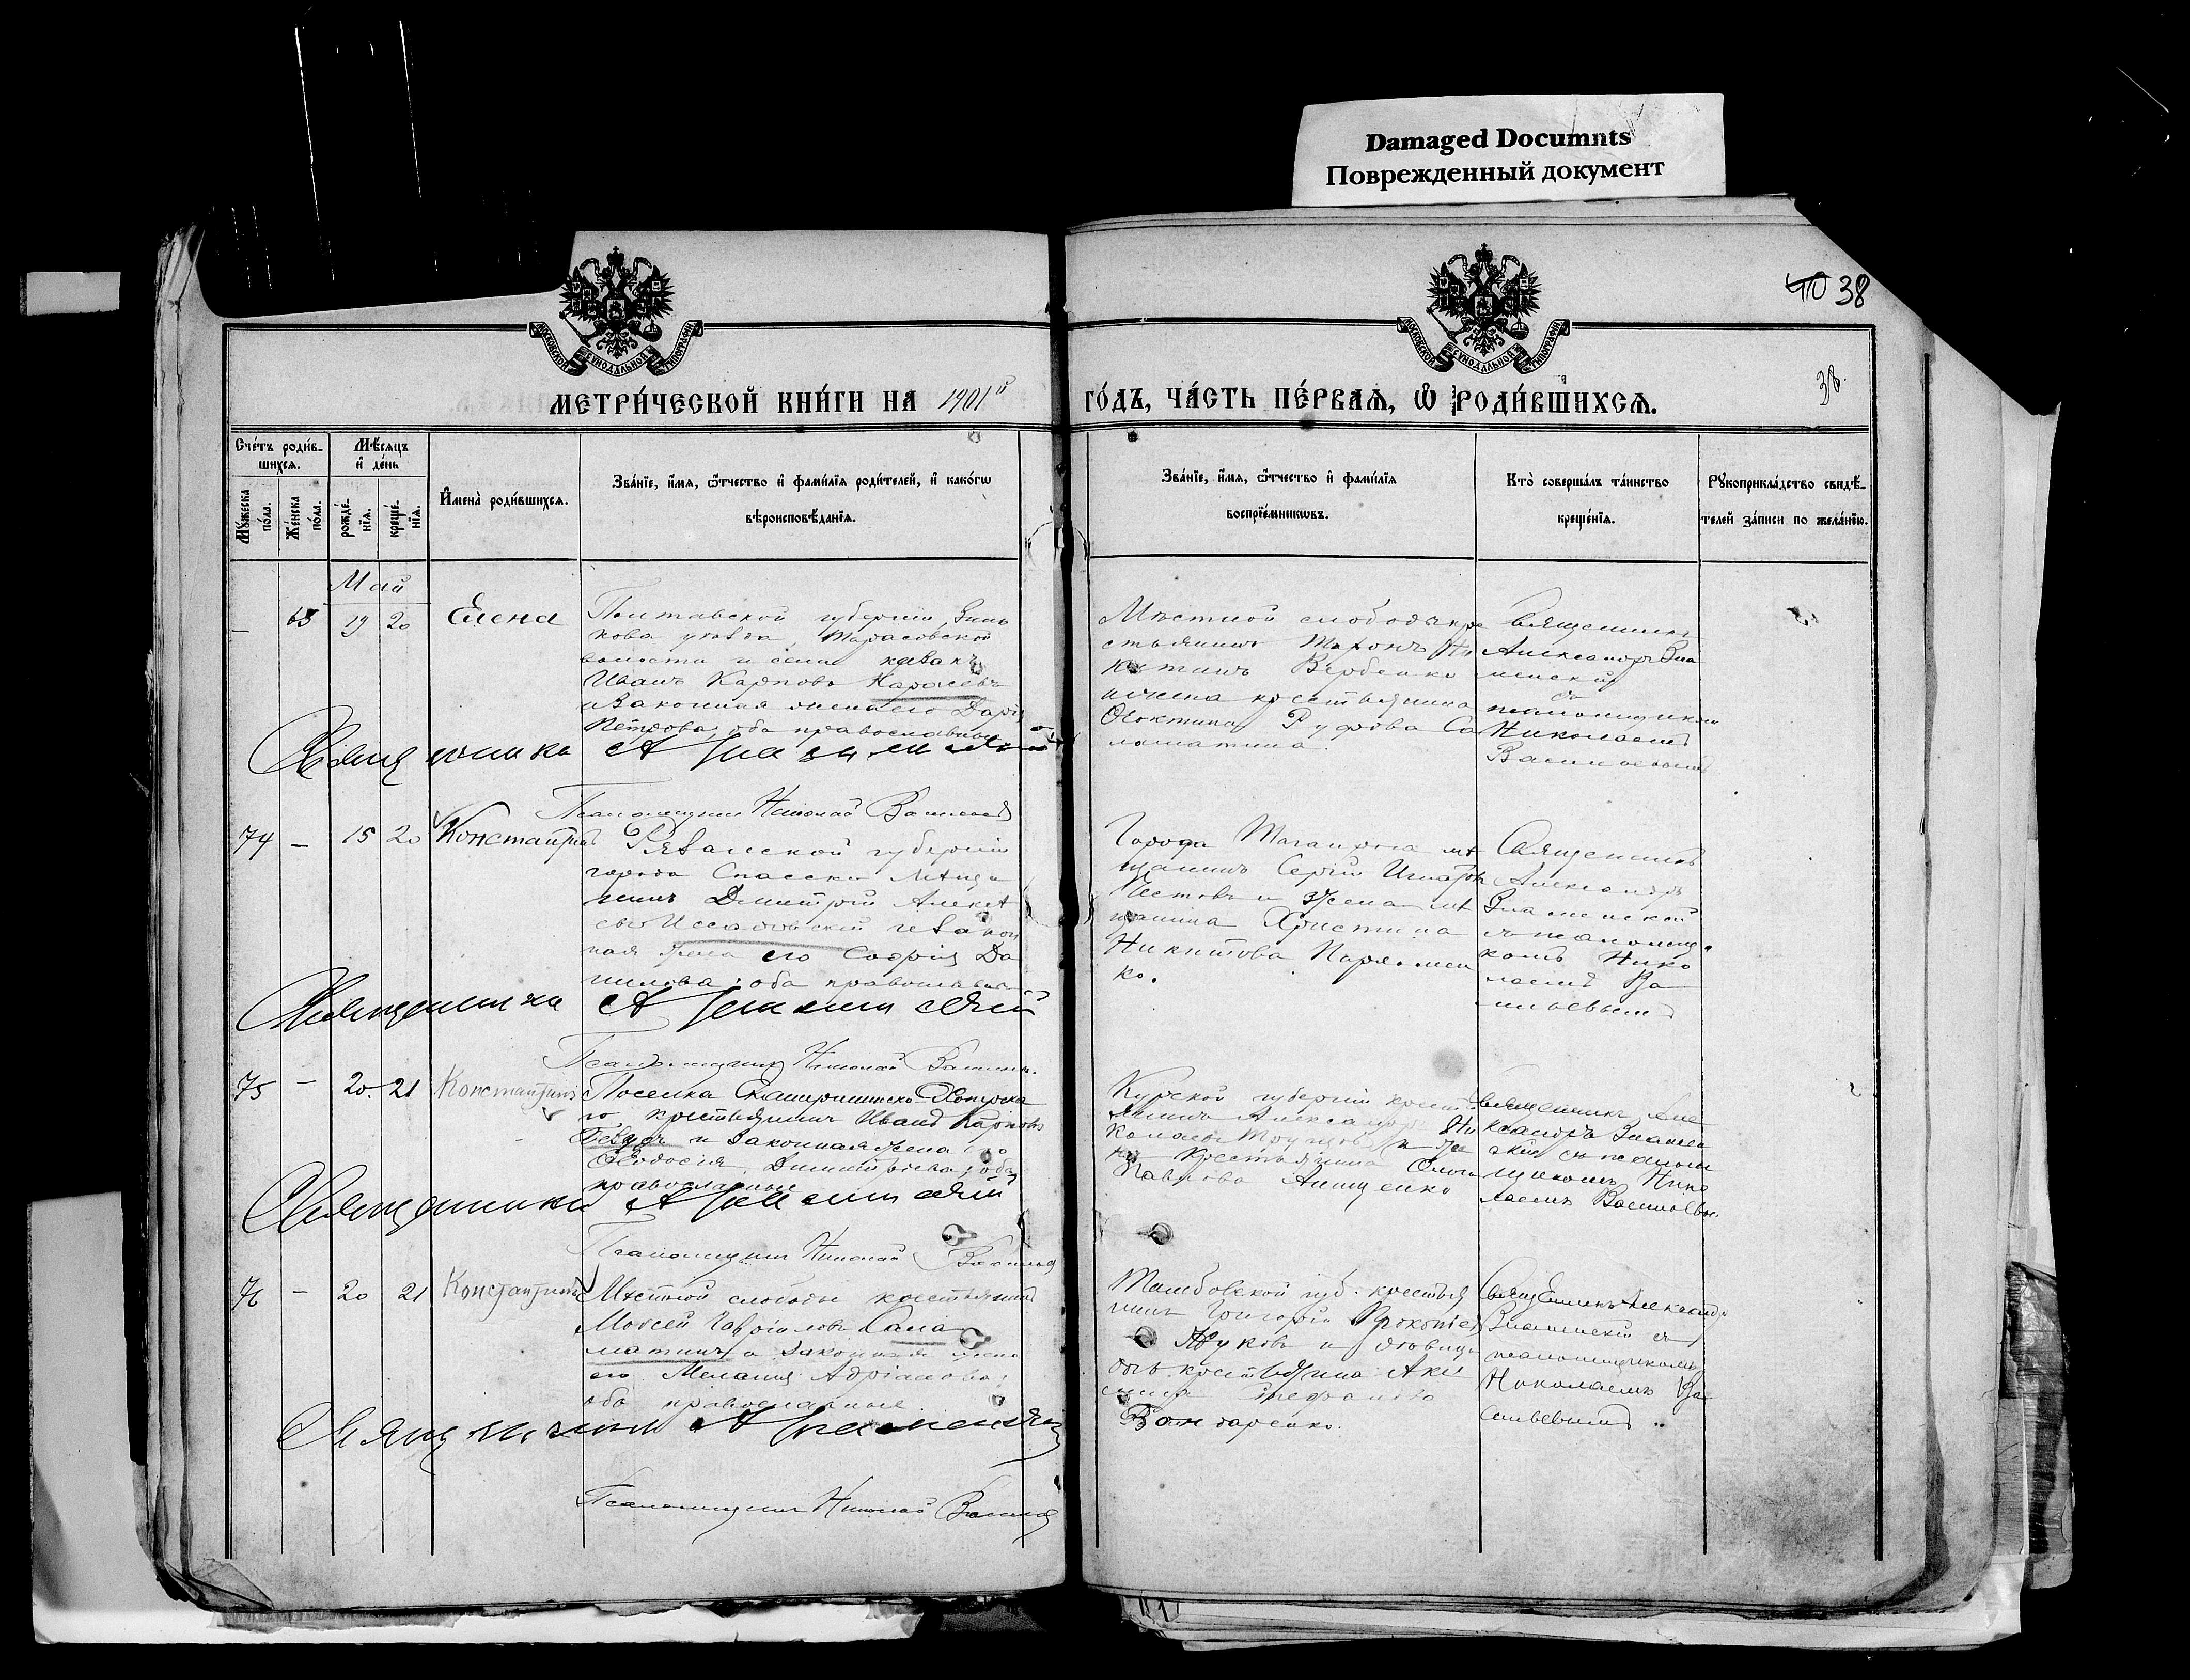 Damaged Documnts
Поврежденный документ
40 38
38
МОСКОВСКОЙ СѴНОДАЛЬНОЙ ТИПОГРАФІИ
МОСКОВСКОЙ СѴНОДАЛЬНОЙ ТИПОГРАФІИ
МЕТРИ́ЧЕСКОЙ КНИ́ГИ НА 1901й ГО́ДЪ, ЧА́СТЬ ПЕ́РВАѦ, Ѡ҆ РОДИ́ВШИХСѦ.
Сче́тъ роди́в-
шихсѧ.
Мꙋ́жеска
по́ла.
Же́нска
по́ла.
Мѣ́сѧцъ
и҆ де́нь
рожде́-
нїѧ.
креще́-
нїѧ.
И҆мена̀ роди́вшихсѧ.
Зва́нїе, и҆́мѧ, ѻ҆́тчество и҆ фами́лїѧ роди́телей, и҆ како́гѡ
вѣроисповѣ́данїѧ.
Зва́нїе, и҆́мѧ, ѻ҆́тчество и҆ фами́лїѧ
воспрїе́мникѡвъ.
Кто̀ соверша́лъ та́инство
креще́нїѧ.
Рꙋкоприкла́дство свидѣ́-
телей за́писи по жела́нїю.
Май
– 68 19 20 Елена
Полтавской губерніи, Зинь
кова уѣзда, Тарасовской
волости и села казакъ
Иванъ Карповъ
и законная жена его Дарія
Петрова, оба православные
Мѣстной слободы кре
стьянинъ
Вербенко
крестьянина
Руфова Са
ломатина.
Священникъ
Александръ Зна
менскій
съ
псаломщикомъ
Николаемъ
Васильевымъ
Священникъ А Знаменскій
Псаломщикъ Николай Васильевъ
74 – 15 20 Константинъ
Рязанской губерніи
города Спасска мѣща
нинъ Дмитрій Алексѣ
евъ и закон
ная жена его Софія Да
нилова; оба православн
Города Таганрога мѣ
щанинъ Сергій Игнатовъ
и жена мѣ
щанина Христина
Никитова Пархомен
ко.
Священникъ
Александръ
Знаменскій
съ псаломщи
комъ Нико
лаемъ Ва
сильевымъ
Священникъ А Знаменскій
Псаломщикъ Николай Васильевъ
75 – 20 21 Константинъ
Поселка Екатериновско-Хопёрска
го крестьянинъ Иванъ Карповъ
и законная жена его
Ѳеодосія Димитріева; оба
православные
Курской губерніи кресть
янинъ Александръ Ни
колаевъ и же
на крестьянина Ольга
Павлова Анищенко
Священникъ Але
ксандръ Знамен
скій съ псалом
щикомъ Нико
лаемъ Васильевы.
Священникъ А Знаменскій
Псаломщикъ Николай Васильевъ
76 – 20 21 Константинъ
Мѣстной слободы крестьянинъ
Моисей Гавріиловъ Сала
матинъ и законная жена
его Меланія Адріанова;
оба православные.
Тамбовской губ. крестья
нинъ Григорій Прокопіевъ
Жуковъ и дѣвица
дочь крестьянина Аки
лина
Бондаренко.
Священникъ Александръ
Знаменскій съ
псаломщикомъ
Николаемъ Ва
сильевымъ ..
Священникъ А Знаменскій
Псаломщикъ Николай Васильевъ